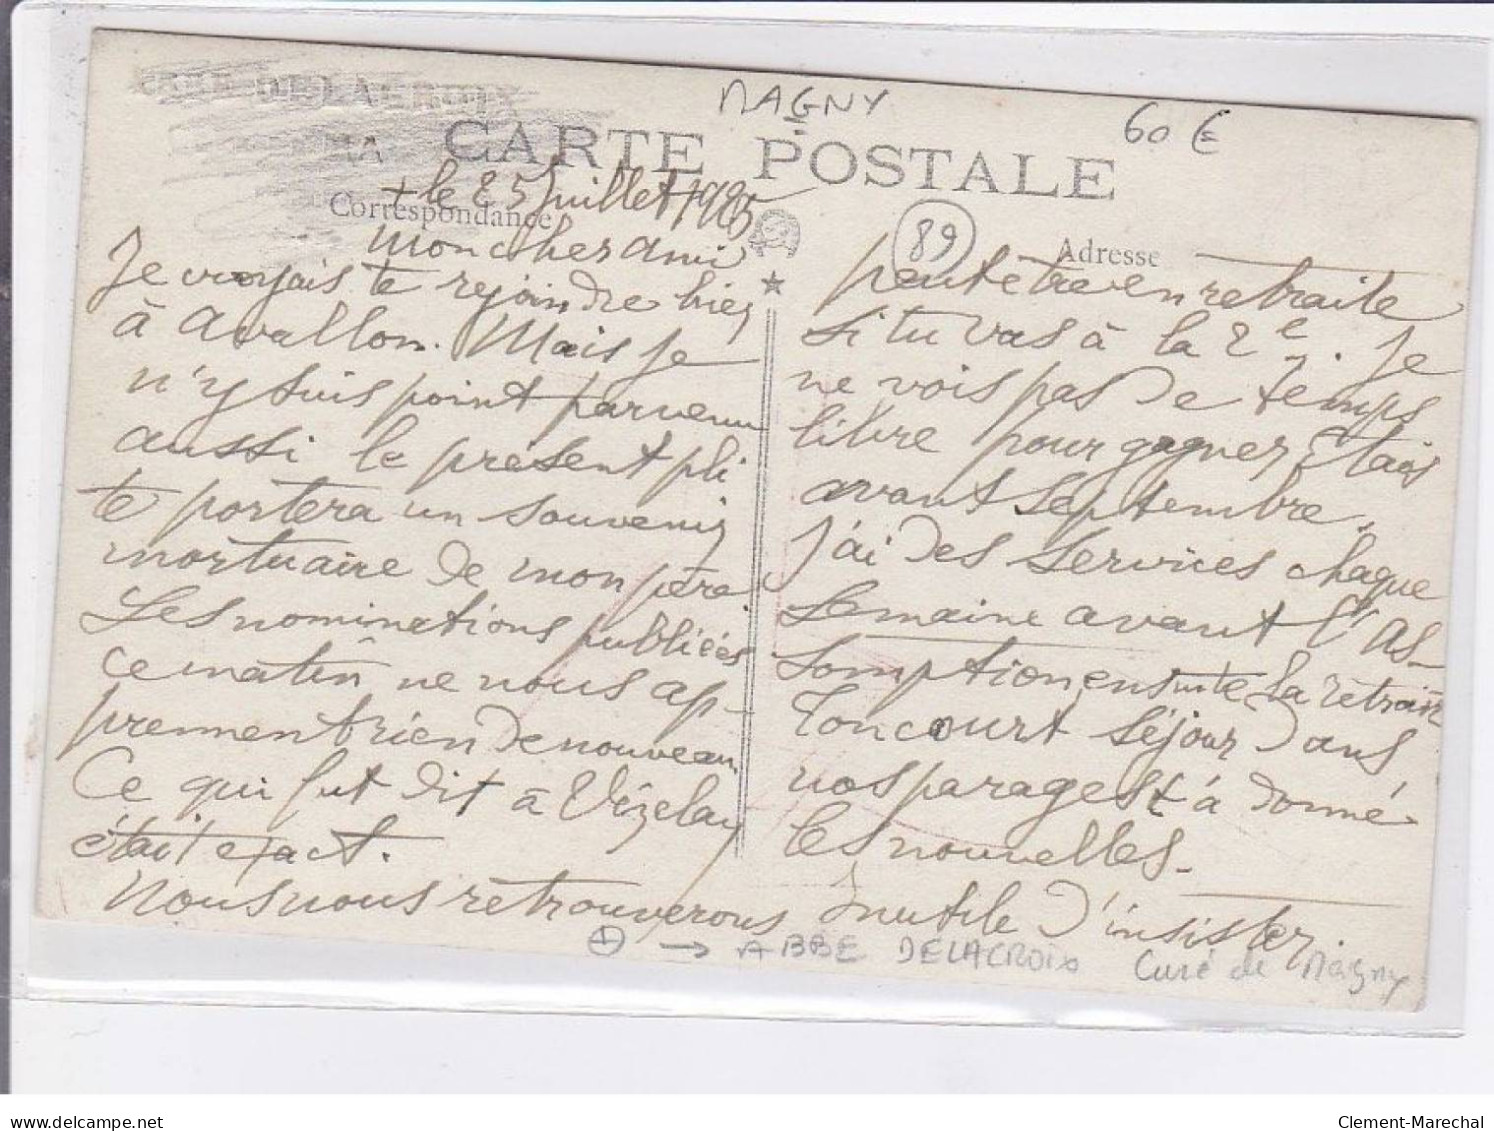 DELACROIX
MAGNY
60 €
CARTE POSTALE
Correspondance
Adresse
89
+ le 25 Juillet 1925
Mon cher ami
Je croyais te rejoindre hier
à Avallon. Mais je
n'y suis point parvenu
aussi le présent pli
te portera un souvenir
mortuaire de mon père
Les nominations publiées
ce matin ne nous ap-
prennent rien de nouveau
Ce qui fut dit à Vézelay
était exact.
Nous nous retrouverons
peut etre en retraite
si tu vas à la 2e. Je
ne vois pas de temps
libre pour gagner Etais
avant Septembre.
J'ai des services chaque
semaine avant l'As-
somption, ensuite la retraite
Ton court séjour dans
nos parages t'a donné
les nouvelles -
Inutile d'insister.
+ → ABBE DELACROIX Curé de Magny
delcampe.net
Clement-Marechal